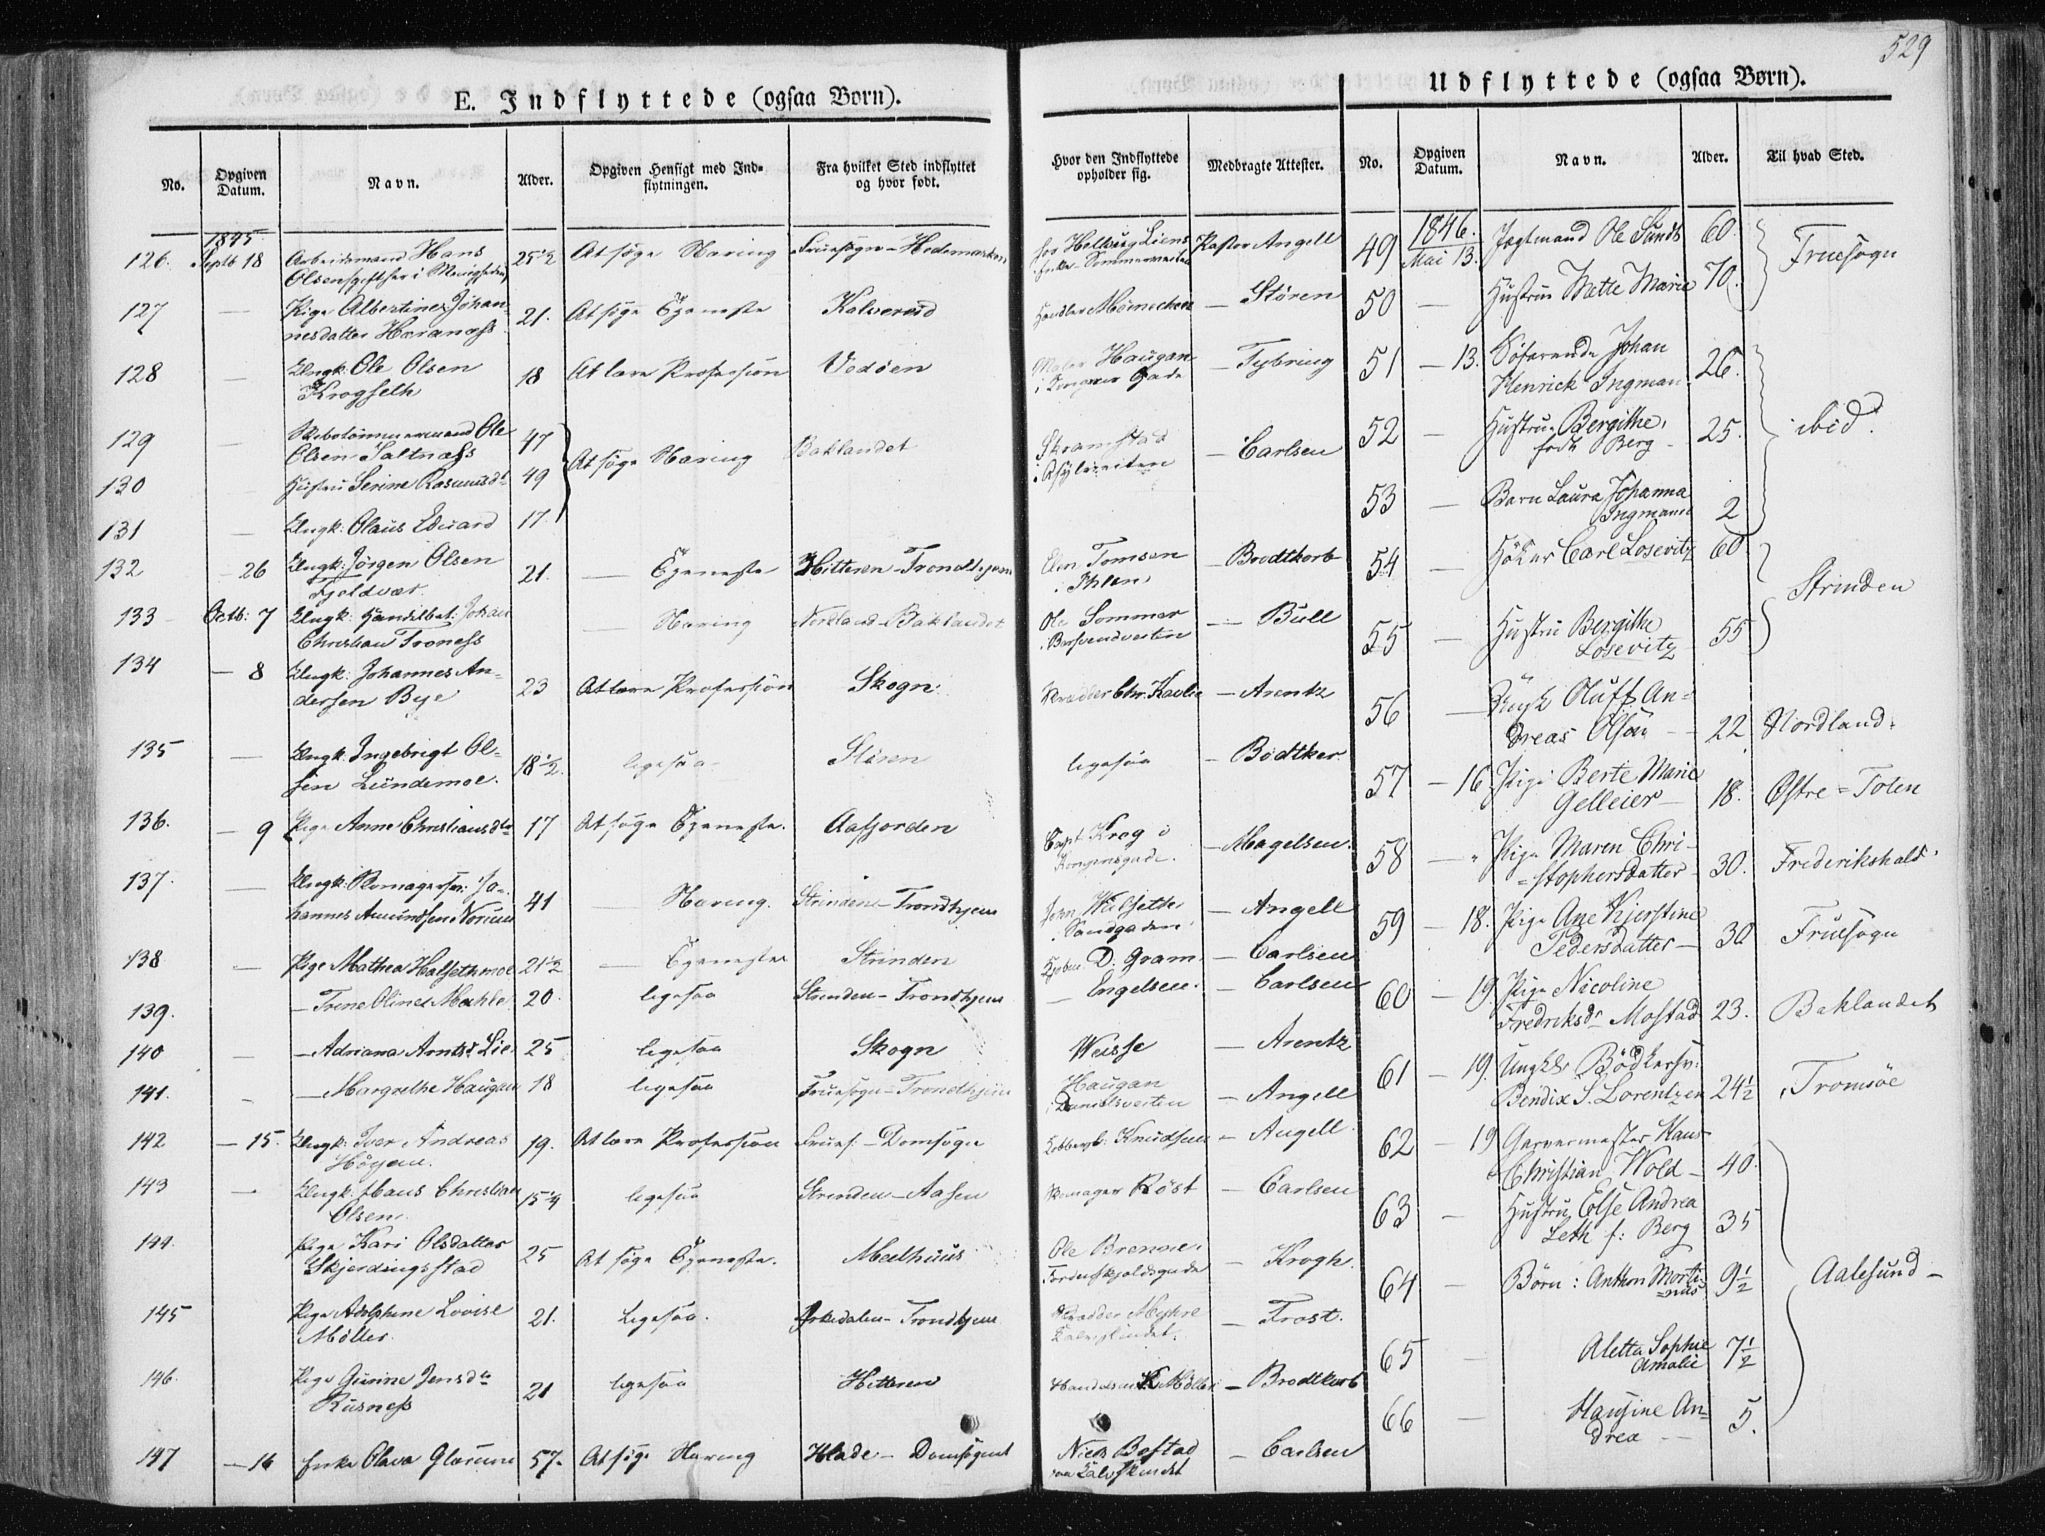 529
E. Indflyttede (ogsaa Børn).
No. Opgiven Datum. Navn. Alder. Opgiven Hensigt med Indflytningen. Fra hvilket Sted indflyttet og hvor født. Hvor den Indflyttede opholder sig. Medbragte Attester.
1845
126. Septb 18 Arbeidsmand Hans 25½ At søge Næring Fruesogn - Hedemarken Pastor Angell
Olsen
127 — Pige Albertine Johan-
nesdatter 21. At søge Tjeneste — Stören
128 — Ungk: Ole Olsen
Krogseth 18 At lære Profession Vedöen Maler Haugan — Tybring
129 — Ole
Olsen Saltnæss 47 At søge Næring Baklandet Skramstad — Carlsen
130 Hustru Serine Rasmusdr 49
131 — Ungk: Olaus Eduard 17.
132 — 26 Ungk: Jörgen Olsen
Fjeldvær 21. — Tjeneste Hitteren - Trondhjem Elen Tomsen
i Ihlen — Brodtkorb
133 Octb: 7 Ungk: Handelsbet: Johan
Christian Troness — Næring Baklandet Ole Sommer — Bull
134 — 8 Ungk: Johannes An-
dersen Bye 23 At lære Profession Skogn. — Arentz
135 — Ungk: Ingebrigt Ol-
sen Lundemoe. 18½. ligesaa Stören ligesaa — Bödtker
136. — 9 Pige Anne Christiansdr 17 At søge Tjeneste. Aafjorden Capt Krog i
Kongensgade. — Magelsen.
137. — Ungk: Jo-
hannes Amundsen 41 — Næring. Strinden - Trondhjem — Angell
138 — Pige Mathea Halsethmoe 21½ — Tjeneste Strinden D. Gram — Carlsen
139. — Trine Oline 20. ligesaa Strinden - Trondhjem — Engelsen. — Carlsen
140 — — Adriana Arntsdr Lie 25 ligesaa Skogn Weisse — Arentz
141. — — Margrethe Haugan 18 ligesaa Fruesogn - Trondhjem Haugan — Angell
142 — 15. Ungk: Iver Andreas
Höyem. 19. At lære Profession Frues: - Domsogn Knudsen — Angell.
143 — Ungk: Hans Christian
Olsen. 15¼ ligesaa Strinden - Aasen Skomager Röst — Carlsen
144. Pige Kari Olsdatter
Skjerdingsstad 25 At søge Tjeneste. Meelhuus Ole Brenne — Krogh.
145 Pige Adolphine Lovise
Möller. 21. ligesaa. Örkedalen - Trondhjem Skrædder Myhre
Kalveskindet. — Trost.
146. Pige Gurine Jensdr
Rusness 21 ligesaa Hitteren — Brodtkorb
147 — 16 Enke Olava 57. At søge Næring Hlade - Domsognet Niels Bostad
paa Kalvskindet — Carlsen
Udflyttede (ogsaa Børn).
No. Opgiven Datum. Navn. Alder. Til hvad Sted.
1846.
49 Mai 13. Jægtmand Ole Sands 60. Fruesogn
50 — Hustru Mette Marie 70.
51 — 13. Söfarende Johan
Henrick Ingman 26. ibid:
52 — Hustru Bergithe,
født Berg — 25.
53 — Barn Laura Johanna
Ingmann 2
54 — Höker Carl Losevitz 60 Strinden
55 — Hustru Bergithe
Losevitz 55
56 — Ungk Oluff An-
dreas Olsen — 22 Nordland.
57 — 16 Pige Berte Marie
Gelleier — 18. Østre = Toten
58 — " Pige Maren Chri-
stophersdatter 30. Frederikshald
59 — 18. Pige Ane Kjerstine
Pedersdatter — 30 Fruesogn
60 — 19. Pige Nicoline
Fredriksdr Mostad 23. Baklandet
61 — 19. Ungk: Bödkersv:
Bendix S. Lorentzen 24½ Tromsöe
62 — 19 Garvermester Hans
Christian Wold — 40. Aalesund —
63 — Hustru Else Andrea
Leth f: Berg 35
64 — Børn: Anthon Morti-
nus 9½
65 — Aletta Sophie
Amalie 7½
66 — Hansine An-
drea — 5.